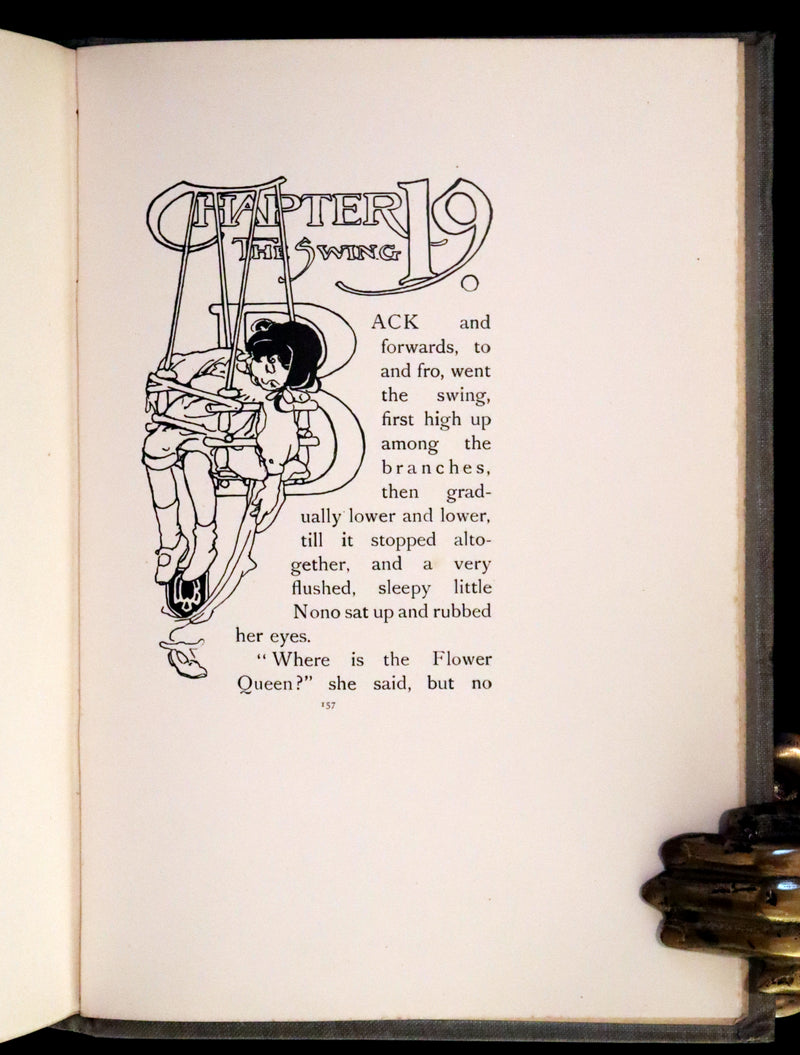 CHAPTER 19
THE SWING
BACK and
forwards, to
and fro, went
the swing,
first high up
among the
branches,
then grad-
ually lower and lower,
till it stopped alto-
gether, and a very
flushed, sleepy little
Nono sat up and rubbed
her eyes.
“Where is the Flower
Queen?” she said, but no
157